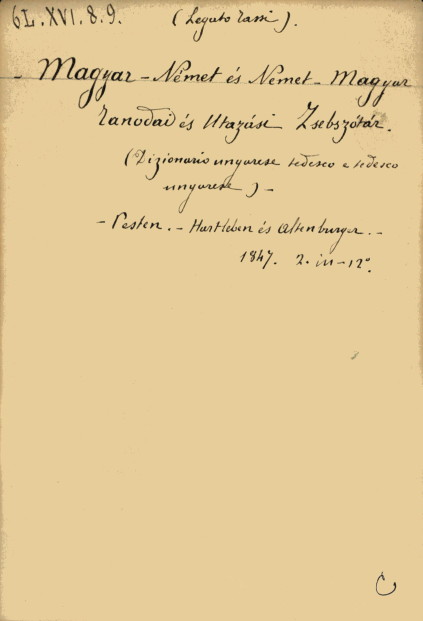 6L.XVI.8.9. (Legato Tassi).
Magyar - Német és Német - Magyar
Tanodai és Utazási Zsebszótár.
(Dizionario ungarese tedesco e tedesco
ungarese) -
- Pesten. - Hartleben és Altenburger. -
1847. 2. in-12°.
C